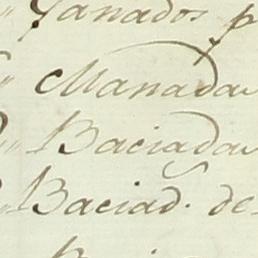 Ganados p
Manada
Baciada
Baciad. de